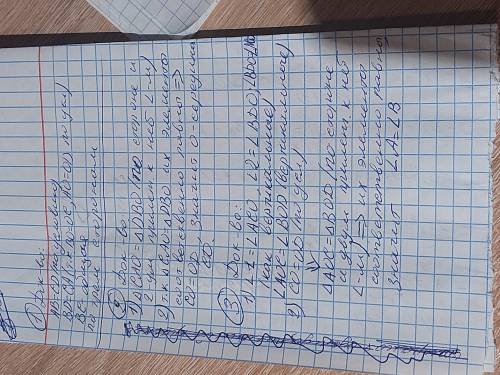 ① Док-во:
BC общая
по трем сторонам
② Док-во
1) ΔCAO = ΔDBO (по стороне и
2 ум прилеж к ней ∠-м)
2) т.к ΔCAO = ΔDBO их элементы
соответственно равны ⇒
CO=OD значит O-середина
CD.
③ Док-во:
1) ∠1 = ∠ACO, ∠2 = ∠BDO
(как вертикальные)
∠AOC = ∠BOD (вертикальные)
2) CO=OD (по усл.)
⇓
ΔAOC = ΔBOD (по стороне
и двум прилеж к ней
∠-м) ⇒ их элементы
соответственно равны
значит ∠A = ∠B